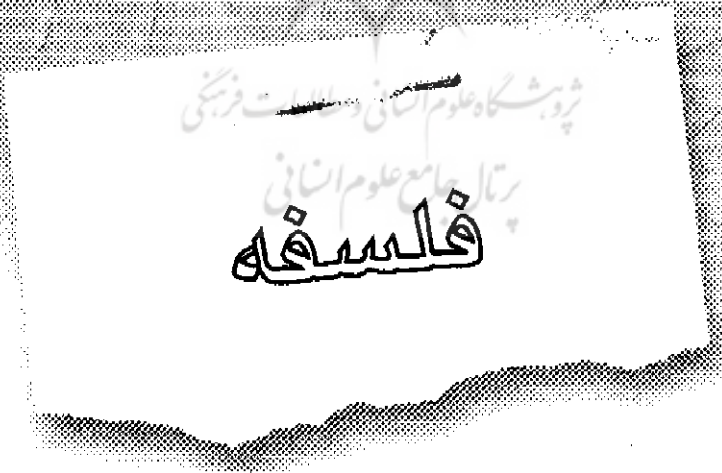 پژوهشگاه علوم انسانی و مطالعات فرهنگی
پرتال جامع علوم انسانی
فلسفه